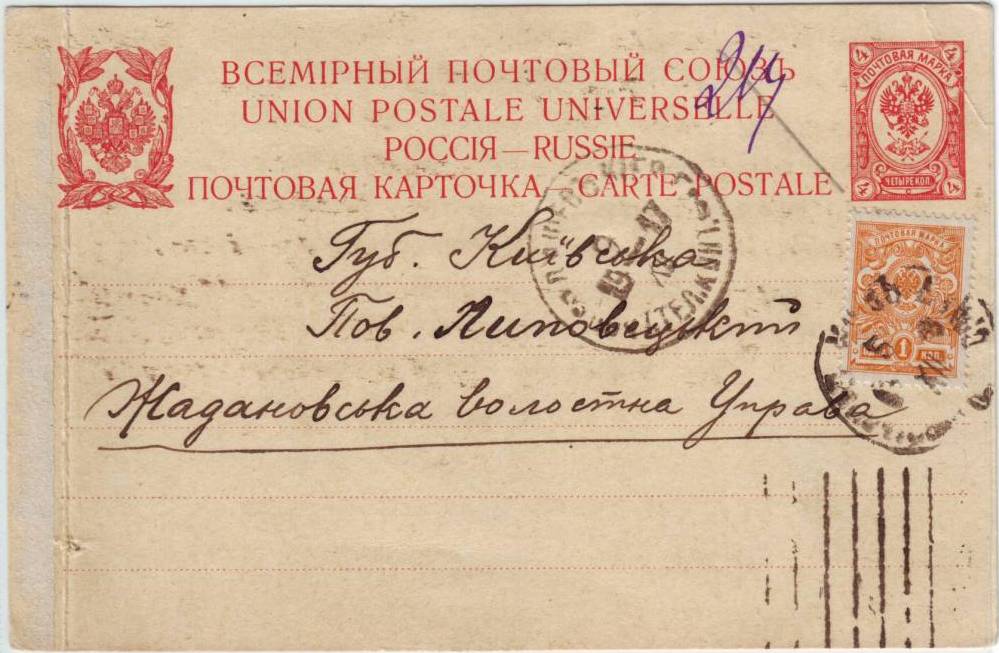 ВСЕМІРНЫЙ ПОЧТОВЫЙ СОЮЗЪ
UNION POSTALE UNIVERSELLE
РОССІЯ—RUSSIE
ПОЧТОВАЯ КАРТОЧКА—CARTE POSTALE
4 4
ПОЧТОВАЯ МАРКА
ЧЕТЫРЕ КОП.
4 4
Губ. Київська
Пов. Липовецький
Жадановська волостна Управа
ПОЧТОВАЯ МАРКА
1 КОП.